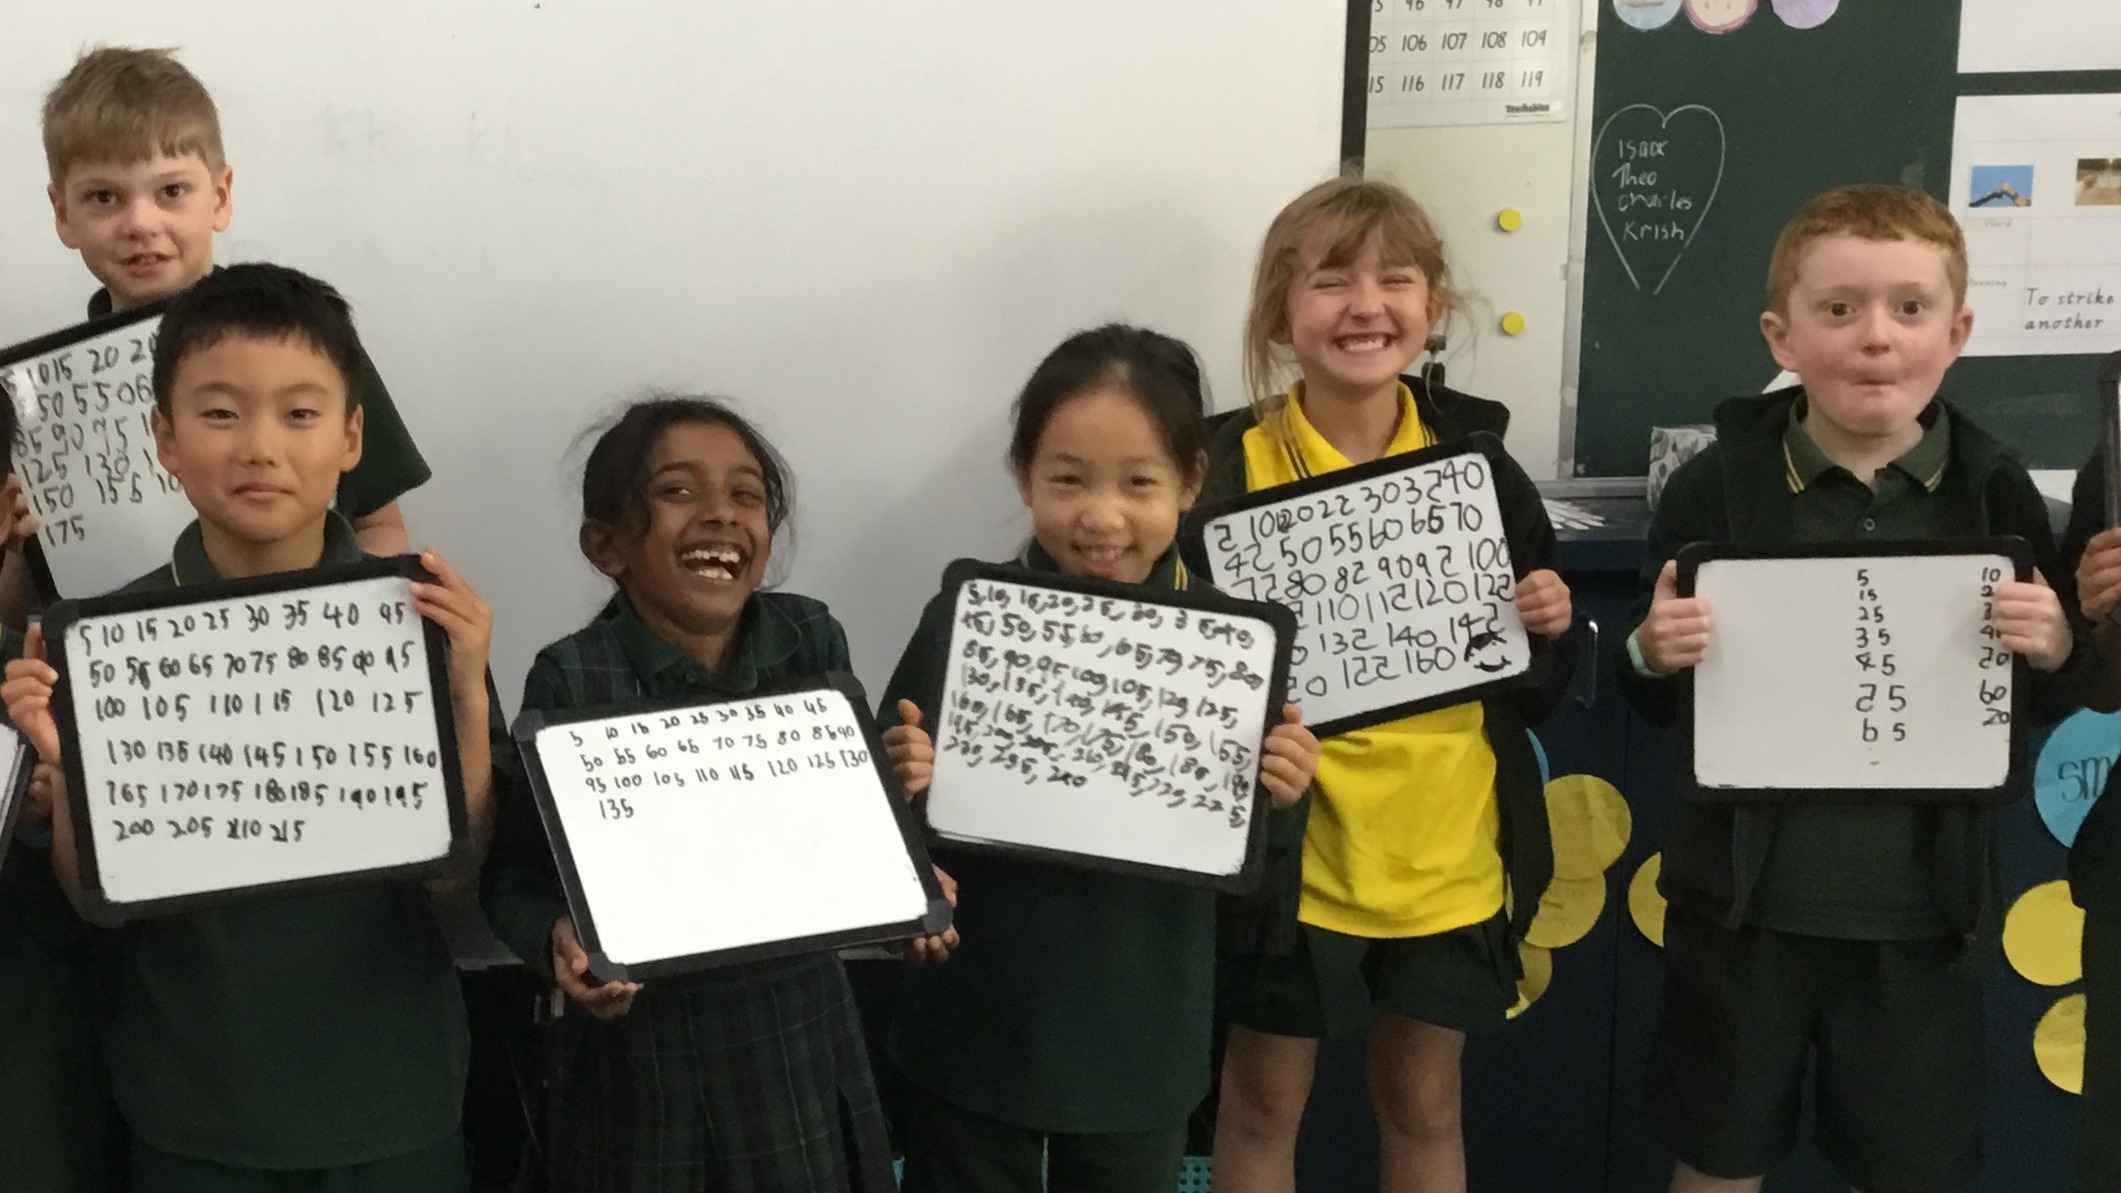 106 107 108 109
116 117 118 119
Teachables
Isaac
Theo
Charles
Krish
To strike
another
1015 20
50 55 06
85 90 95
125 130
150 155
175
5 10 15 20 25 30 35 40 45
50 55 60 65 70 75 80 85 90 95
100 105 110 115 120 125
130 135 140 145 150 155 160
165 170 175 180 185 190 195
200 205 210 215
5 10 15 20 25 30 35 40 45
50 55 60 65 70 75 80 8590
95 100 105 110 115 120 125 130
135
5, 10, 15, 20, 25, 30, 3 5, 40,
45, 50, 55, 60, 65, 70, 75, 80,
85, 90, 95, 100, 105, 120, 125,
130, 135, 140, 145, 150, 155,
160, 165, 170, 175, 180, 185, 190,
225,
230, 235, 240
5 10 15 20 25 30 35 40
45 50 55 60 65 70
75 80 85 90 95 100
110 115 120 125
135 140 145
155 160
5 10
15
25
35
45
55 60
65
sm